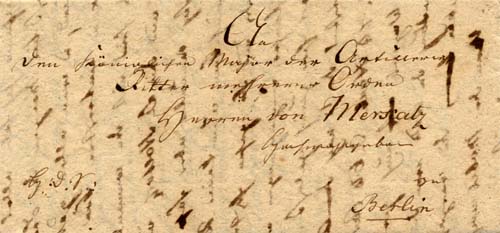 An
den Königlichen Major der Artillerie
Ritter mehrerer Orden
Herren von
Hochwohlgeboren
zu
Berlin